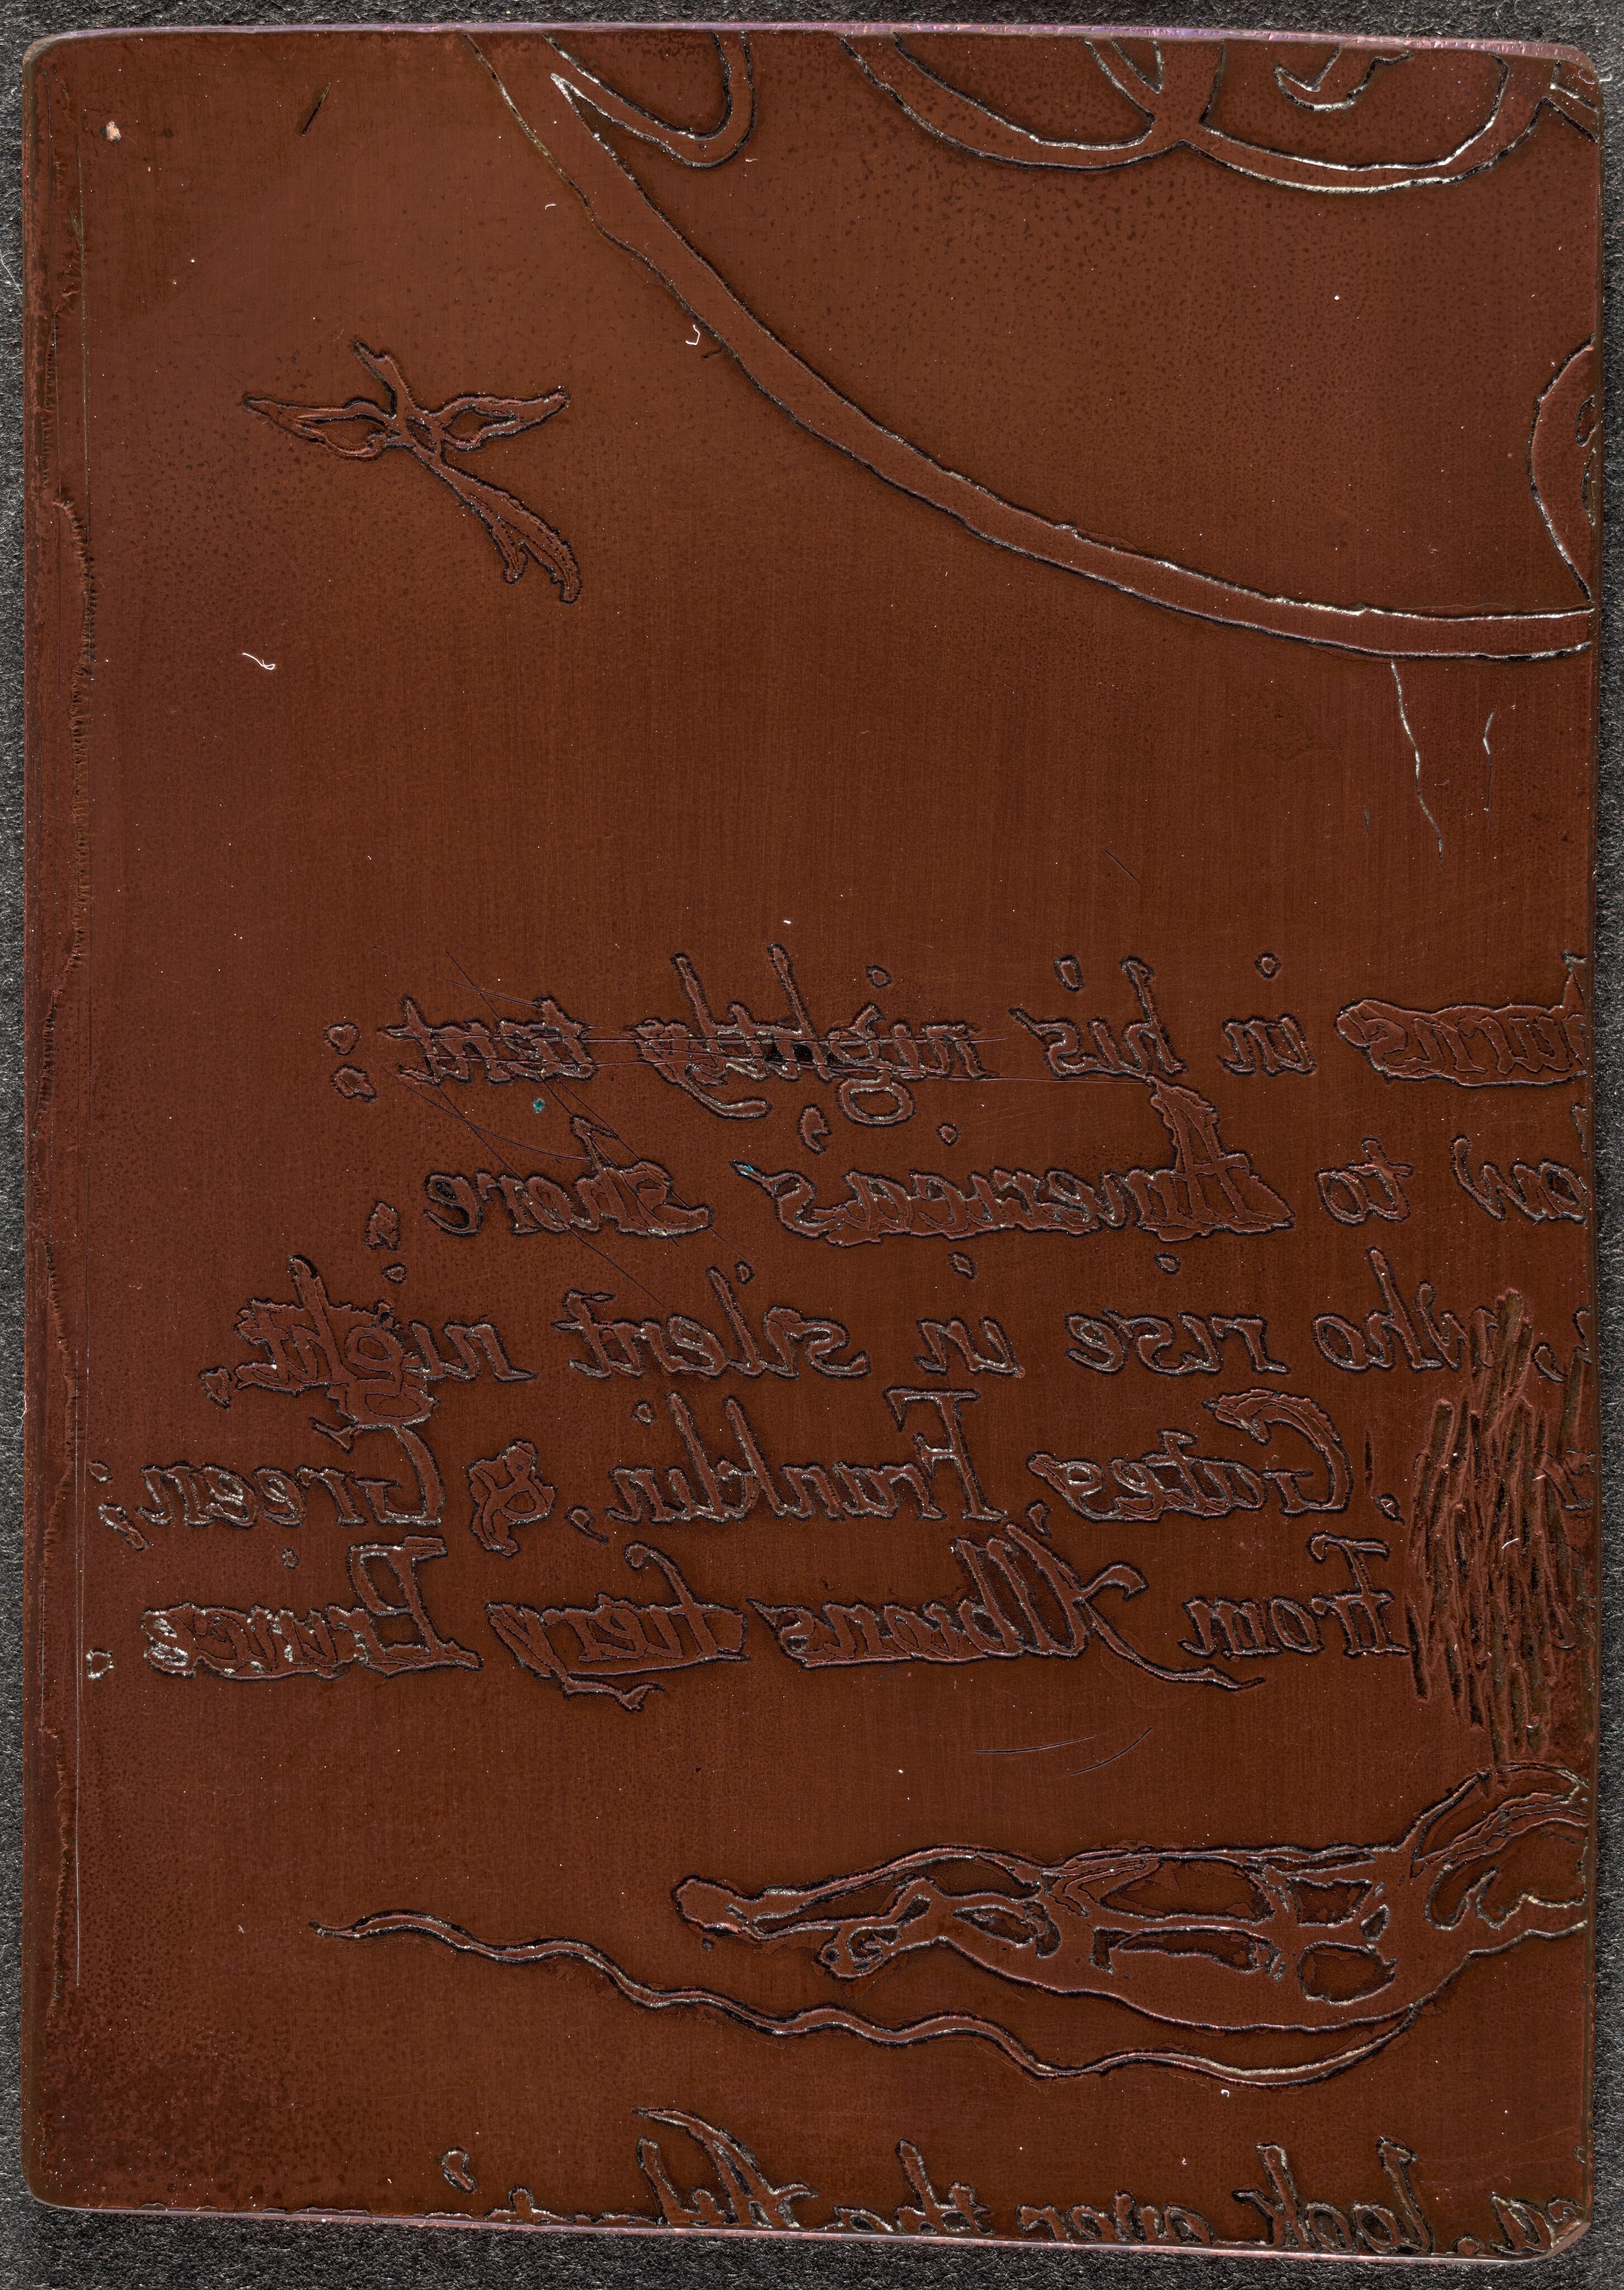 urns in his nightly tent:
ow to America's shore;
, who rise in silent night,
, Gates, Franklin, & Green;
From Albions fiery Prince.
ca. look over the Atlantic